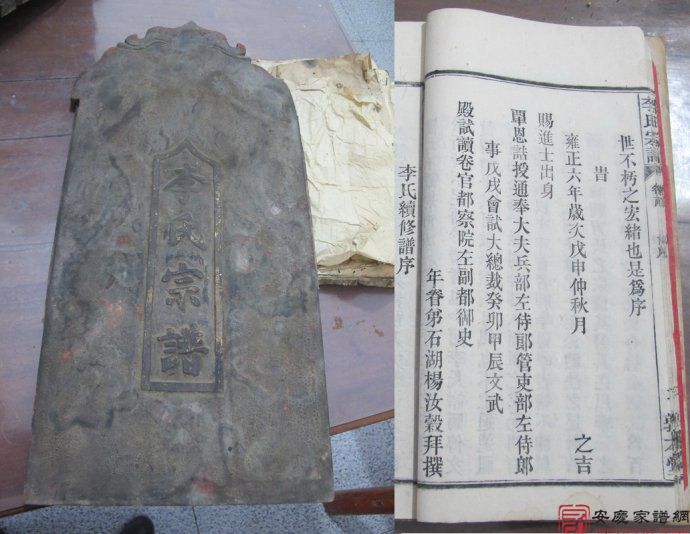 李氏宗譜
李氏宗譜
世不朽之宏緒也是爲序
旹
雍正六年歲次戊申仲秋月 之吉
賜進士出身
覃恩誥授通奉大夫兵部左侍郎管吏部左侍郎
事戊戌會試大總裁癸卯甲辰文武
殿試讀卷官都察院左副都御史
年眷弟石湖楊汝穀拜撰
李氏續修譜序
安慶家譜網